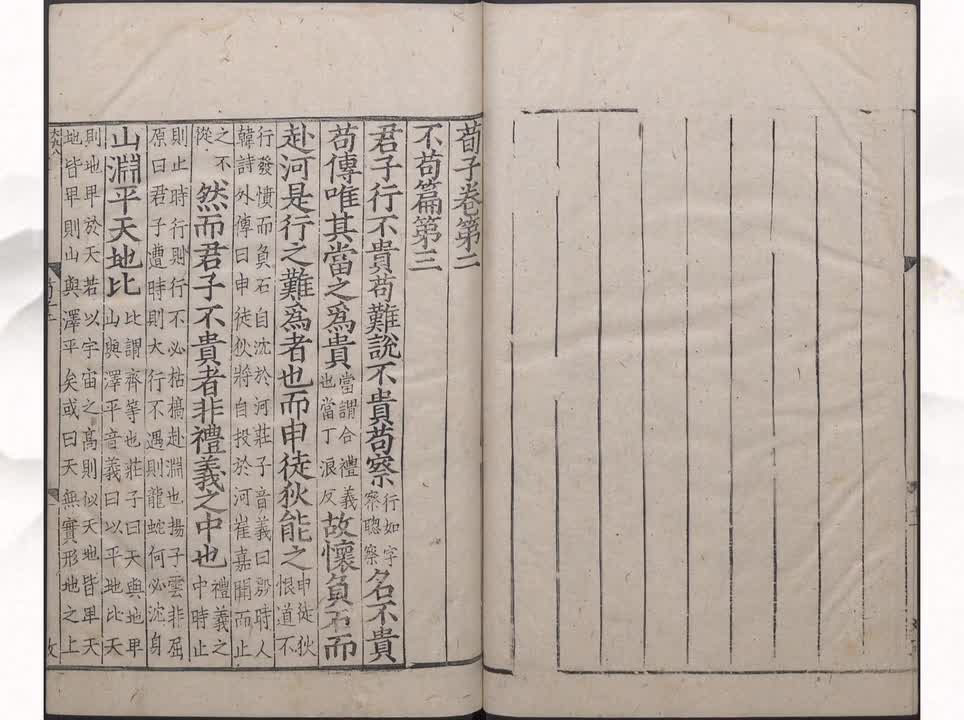 荀子卷第二
不苟篇第三
君子行不貴苟難說不貴苟察行如字察聰察名不貴
苟傳唯其當之爲貴當謂合禮義也當丁浪反故懷負石而
赴河是行之難爲者也而申徒狄能之申徒狄恨道不
行發憤而負石自沈於河莊子音義曰殷時人
韓詩外傳曰申徒狄將自投於河崔嘉聞而止
之不從然而君子不貴者非禮義之中也禮義之中時止
則止時行則行不必枯槁赴淵也揚子雲非屈
原曰君子遭時則大行不遇則龍蛇何必沈身
山淵平天地比比謂齊等也莊子曰天與地卑山與澤平音義曰以平地比天
則地卑於天若以宇宙之高則似天地皆卑天
地皆卑則山與澤平矣或曰天無實形地之上